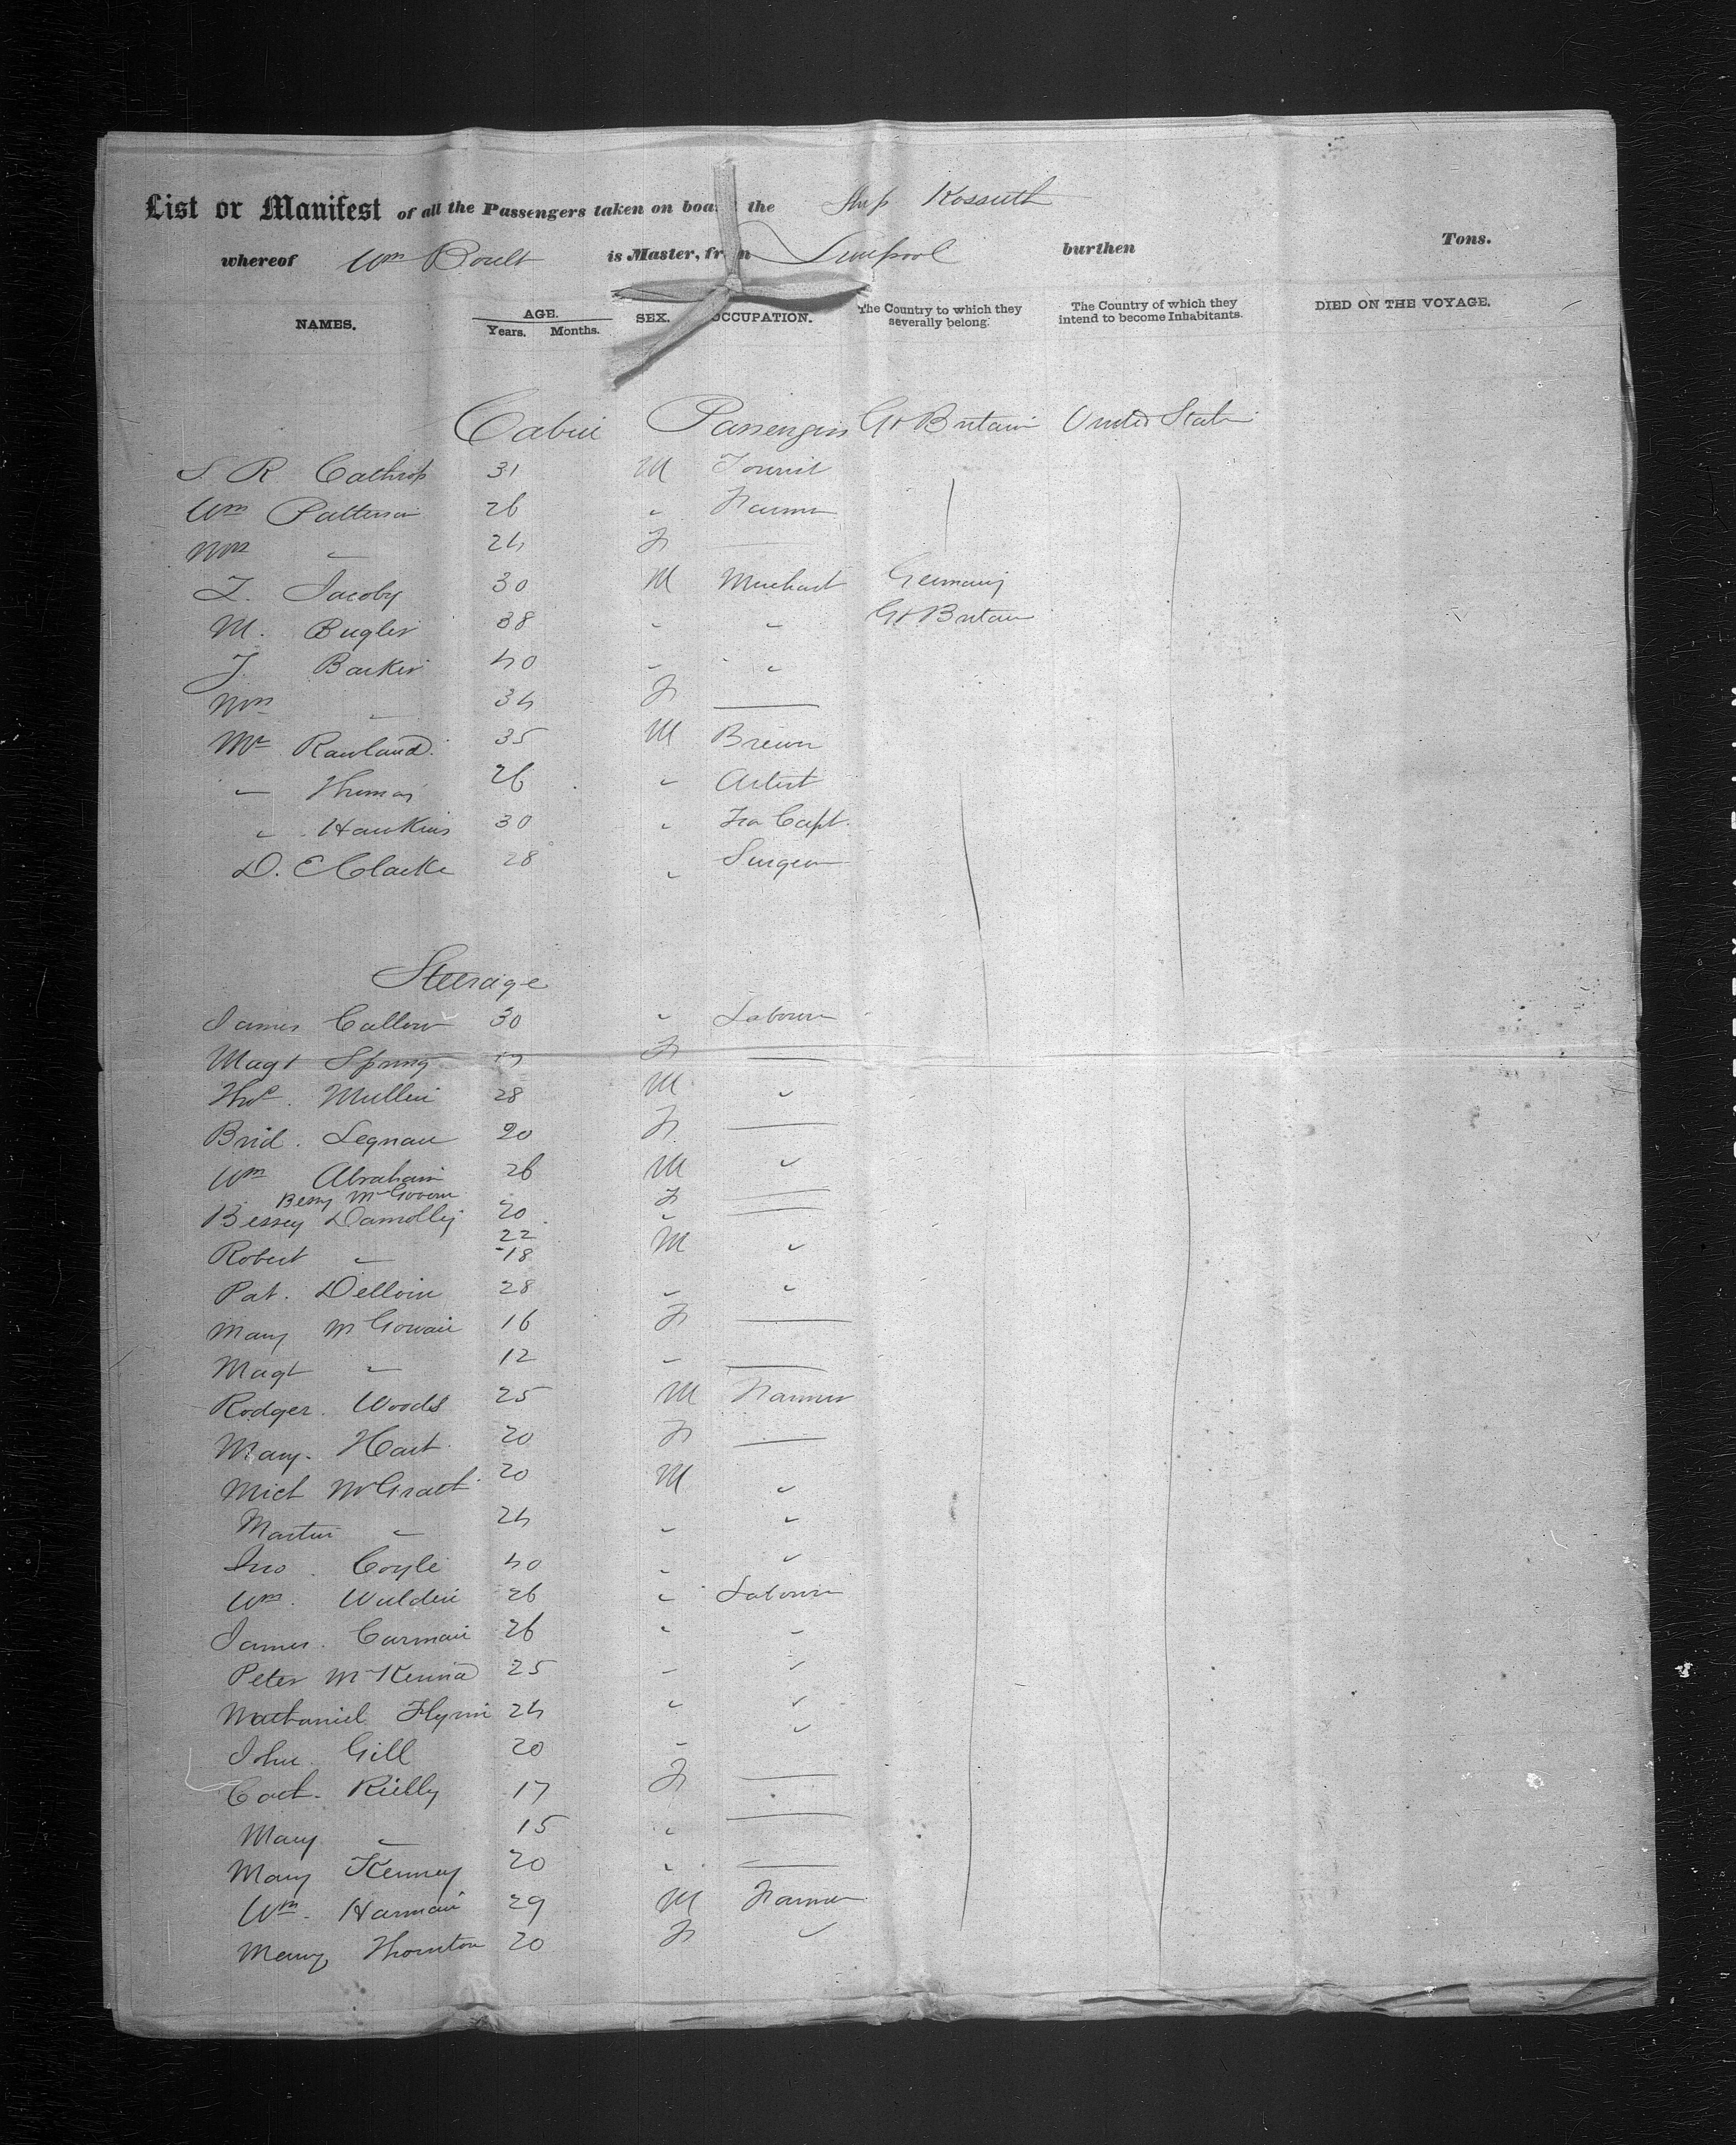 List or Manifest of all the Passengers taken on board the Ship Kossuth
whereof Wm Boult is Master, from Liverpool burthen Tons.
NAMES. AGE. Years. Months. SEX. OCCUPATION. The Country to which they severally belong. The Country of which they intend to become Inhabitants. DIED ON THE VOYAGE.
Cabin Passengers Gt Britain United States
S. R Calthrop 31 M Tourist
Wm Patterson 26 " Farmer
Mrs " 24 F —
I. Jacoby 30 M Merchant Germany
M. Bugler 38 " " Gt Britain
J. Barker 40 " "
Mrs " 34 F —
Mr Rawland 35 M Brewer
" Thomas 26 " Artist
" Hawkins 30 " Capt.
D. E Clarke 28 " Surgeon
Steerage
James Callow 30 " Labourer
Magt Spring F —
Thos. Mullin 28 M "
Brid. Legnau 20 F —
Wm Abraham 26 M "
Bessy McGovern " F —
Bessey Damolly 20 " —
Robert " 22 18 M "
Pat. Delloin 28 " "
Mary McGowan 16 F —
Magt " 12 " —
Rodger Woods 25 M Farmer
Mary. Hart 20 F —
Mich McGrath 20 M "
Martin " 24 " "
Jno. Coyle 40 " "
Wm. Waldin 26 " Labourer
James. Carman 26 " "
Peter McKenna 25 " "
Nathaniel Flynn 24 " "
John. Gill 20 " "
Cath. Rielly 17 F —
Mary " 15 " —
Mary Kenney 20 " —
Wm. Harman 29 M Farmer
Mary Thornton 20 F "